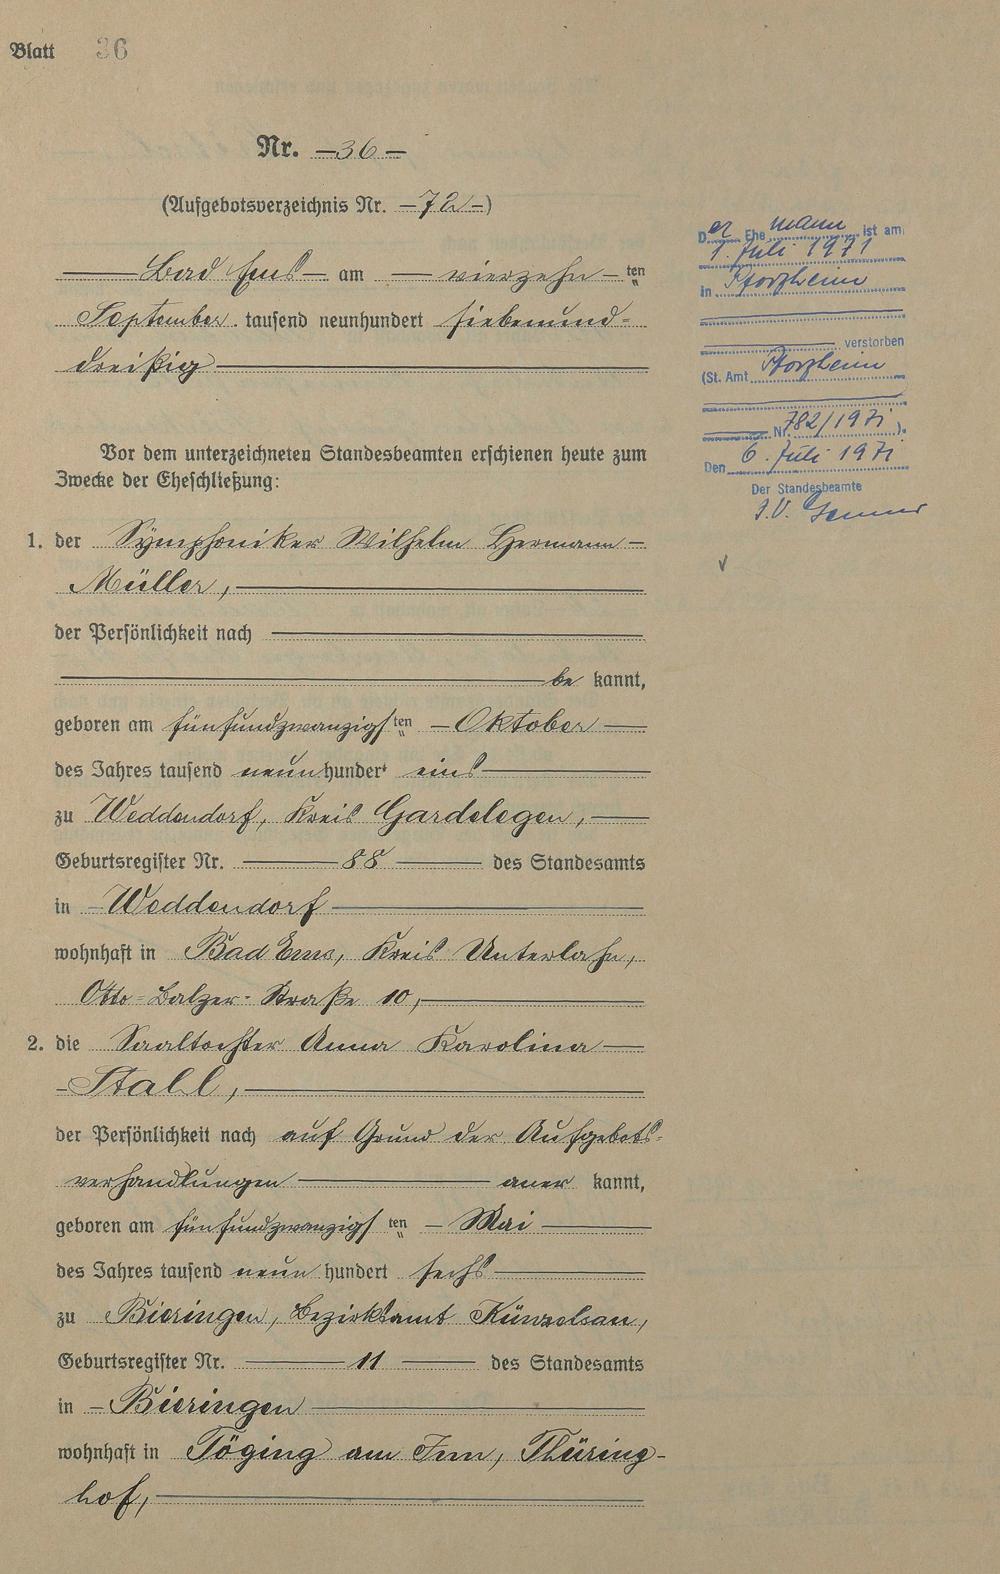 Blatt 36
Nr. —36—
(Aufgebotsverzeichnis Nr. —72—)
Bad Ems — am — vierzehn — ten
September tausend neunhundert siebenund-
dreißig
Vor dem unterzeichneten Standesbeamten erschienen heute zum
Zwecke der Eheschließung:
1. der Symphoniker Wilhelm Hermann —
Müller,
der Persönlichkeit nach
be kannt,
geboren am fünfundzwanzigsten — Oktober —
des Jahres tausend neunhundert eins
zu Weddendorf, Kreis Gardelegen,
Geburtsregister Nr. 88 des Standesamts
in — Weddendorf
wohnhaft in Bad Ems, Kreis Unterlahn,
Otto-Balzer-Straße 10,
2. die Saaltochter Anna Karolina —
-Stahl,
der Persönlichkeit nach auf Grund der Aufgebots-
verhandlungen — aner kannt,
geboren am fünfundzwanzigsten — Mai
des Jahres tausend neun hundert sechs
zu Bieringen, Bezirksamt Künzelsau,
Geburtsregister Nr. 11 des Standesamts
in — Bieringen
wohnhaft in Töging am Inn, Thüring-
hof,
Der Ehemann ist am
1. Juli 1971
in Pforzheim
verstorben
(St. Amt Pforzheim
Nr. 782/1971).
Den 6. Juli 1971
Der Standesbeamte
J.V.